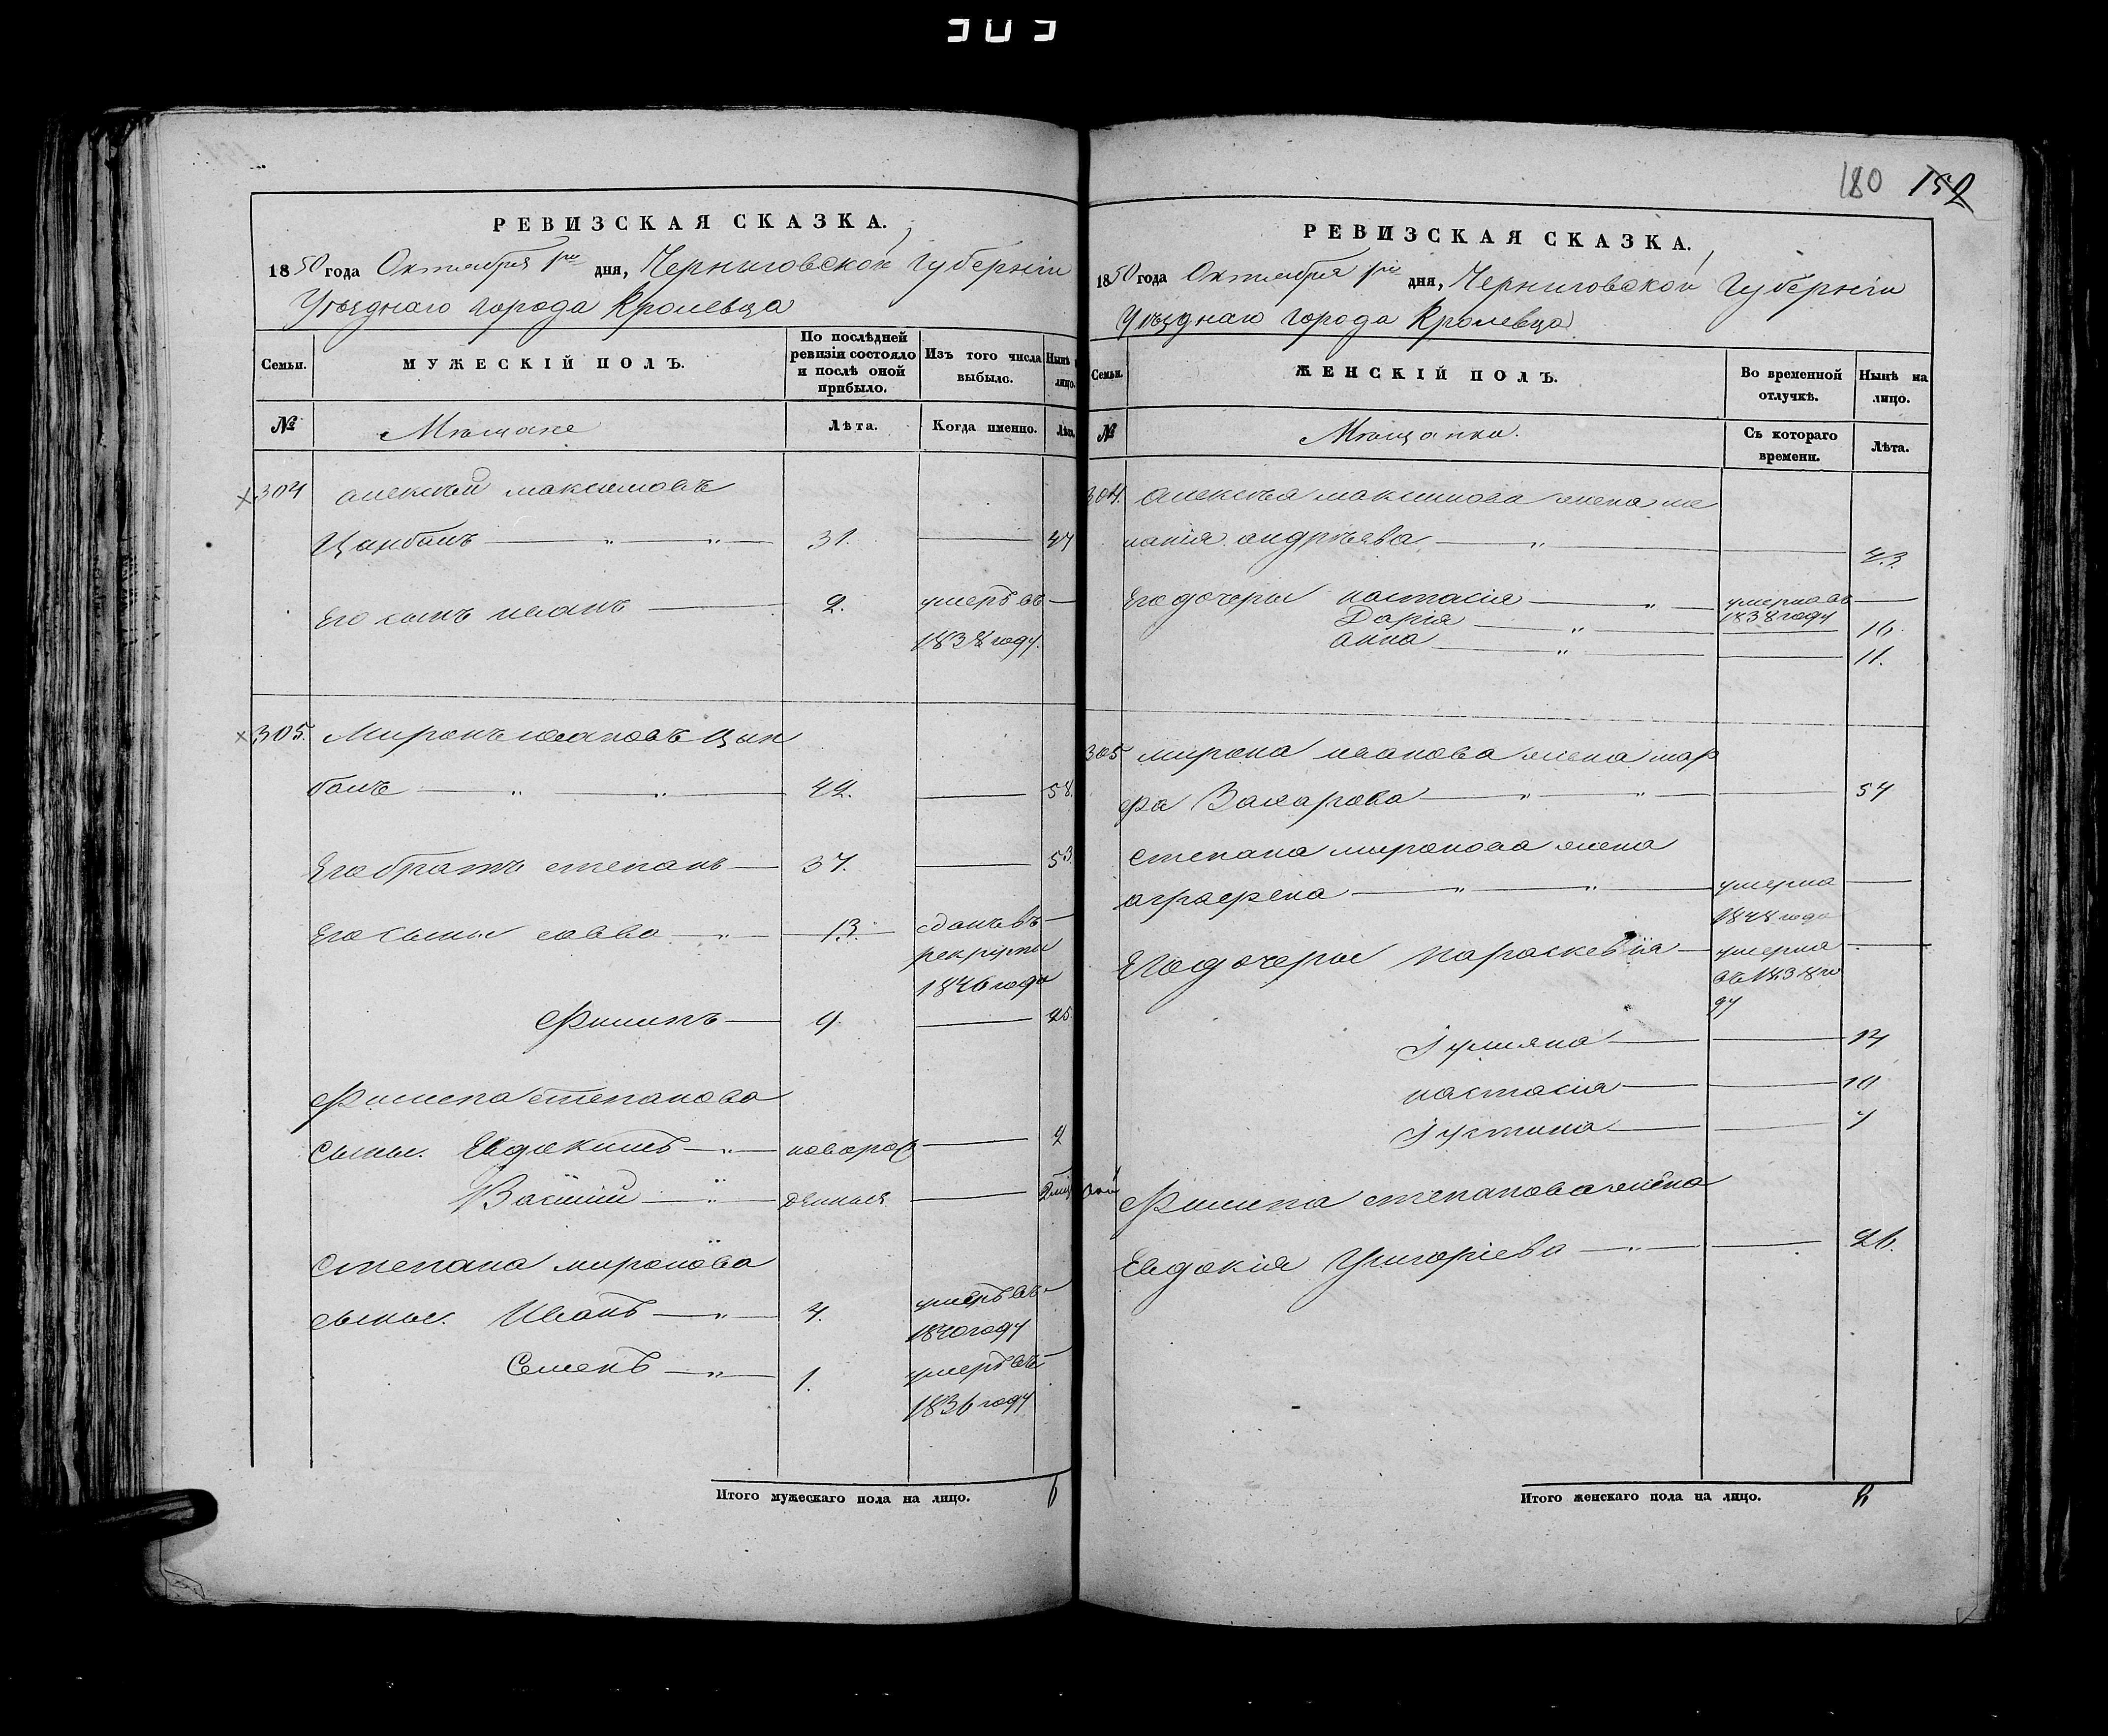 303
РЕВИЗСКАЯ СКАЗКА.
1850 года Октября 1го дня, Черниговской Губерніи
Уѣзднаго города Кролевца
Семьи. МУЖЕСКІЙ ПОЛЪ. По послѣдней ревизіи состояло и послѣ оной прибыло. Изъ того числа выбыло. Нынѣ лицо.
№ Мѣщане Лѣта. Когда именно. Лѣта.
304 алексѣй максимовъ
Цанбалъ 31. 47
Его сынъ иванъ 2. умеръ въ
1838 году.
305. Миронъ ивановъ Цын
балъ 42. 58.
Его братъ степанъ 37. 53.
Его сыны савва 13. сданъ въ
рекруты
1846 года
Филипъ 9. 25.
Филипа степанова
сыны. Евдокимъ новорож 4
Василий денныя 2 мѣ
Степана миронова
сыны. Иванъ 4. умеръ въ
1840 году
Семенъ 1. умеръ въ
1836 году
Итого мужескаго пола на лицо. 6
180 152
РЕВИЗСКАЯ СКАЗКА.
1850 года Октября 1го дня, Черниговской Губерніи
Уѣзднаго города Кролевца
Семьи. ЖЕНСКІЙ ПОЛЪ. Во временной отлучкѣ. Нынѣ на лицо.
№ Мѣщанки. Съ котораго времени. Лѣта.
304. Алексѣя максимова жена ме
ланія андрѣева 43
Его дочеры настасія умерла въ
1838 году
Дарія 16.
анна 11.
305 мирона иванова жена мар
фа Захарова 54
степана миронова жена
аграфена умерла
1848 года
Его дочеры параскевія умерла
въ 1838 го
ду
Іульяна 14
настасія 10
Іустина 7
Филипа степанова жена
Евдокія Григоріева 26.
Итого женскаго пола на лицо. 8